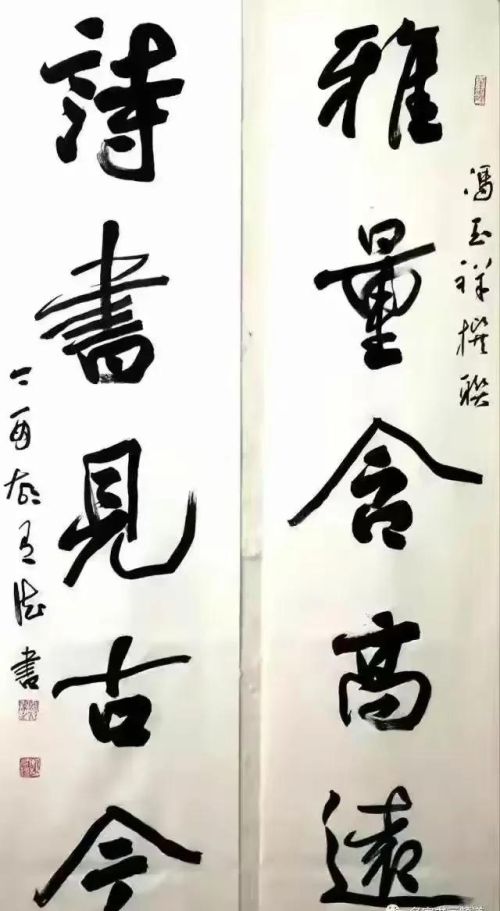 雅量含高遠
馮玉祥撰聯
詩書見古今
丁酉 書